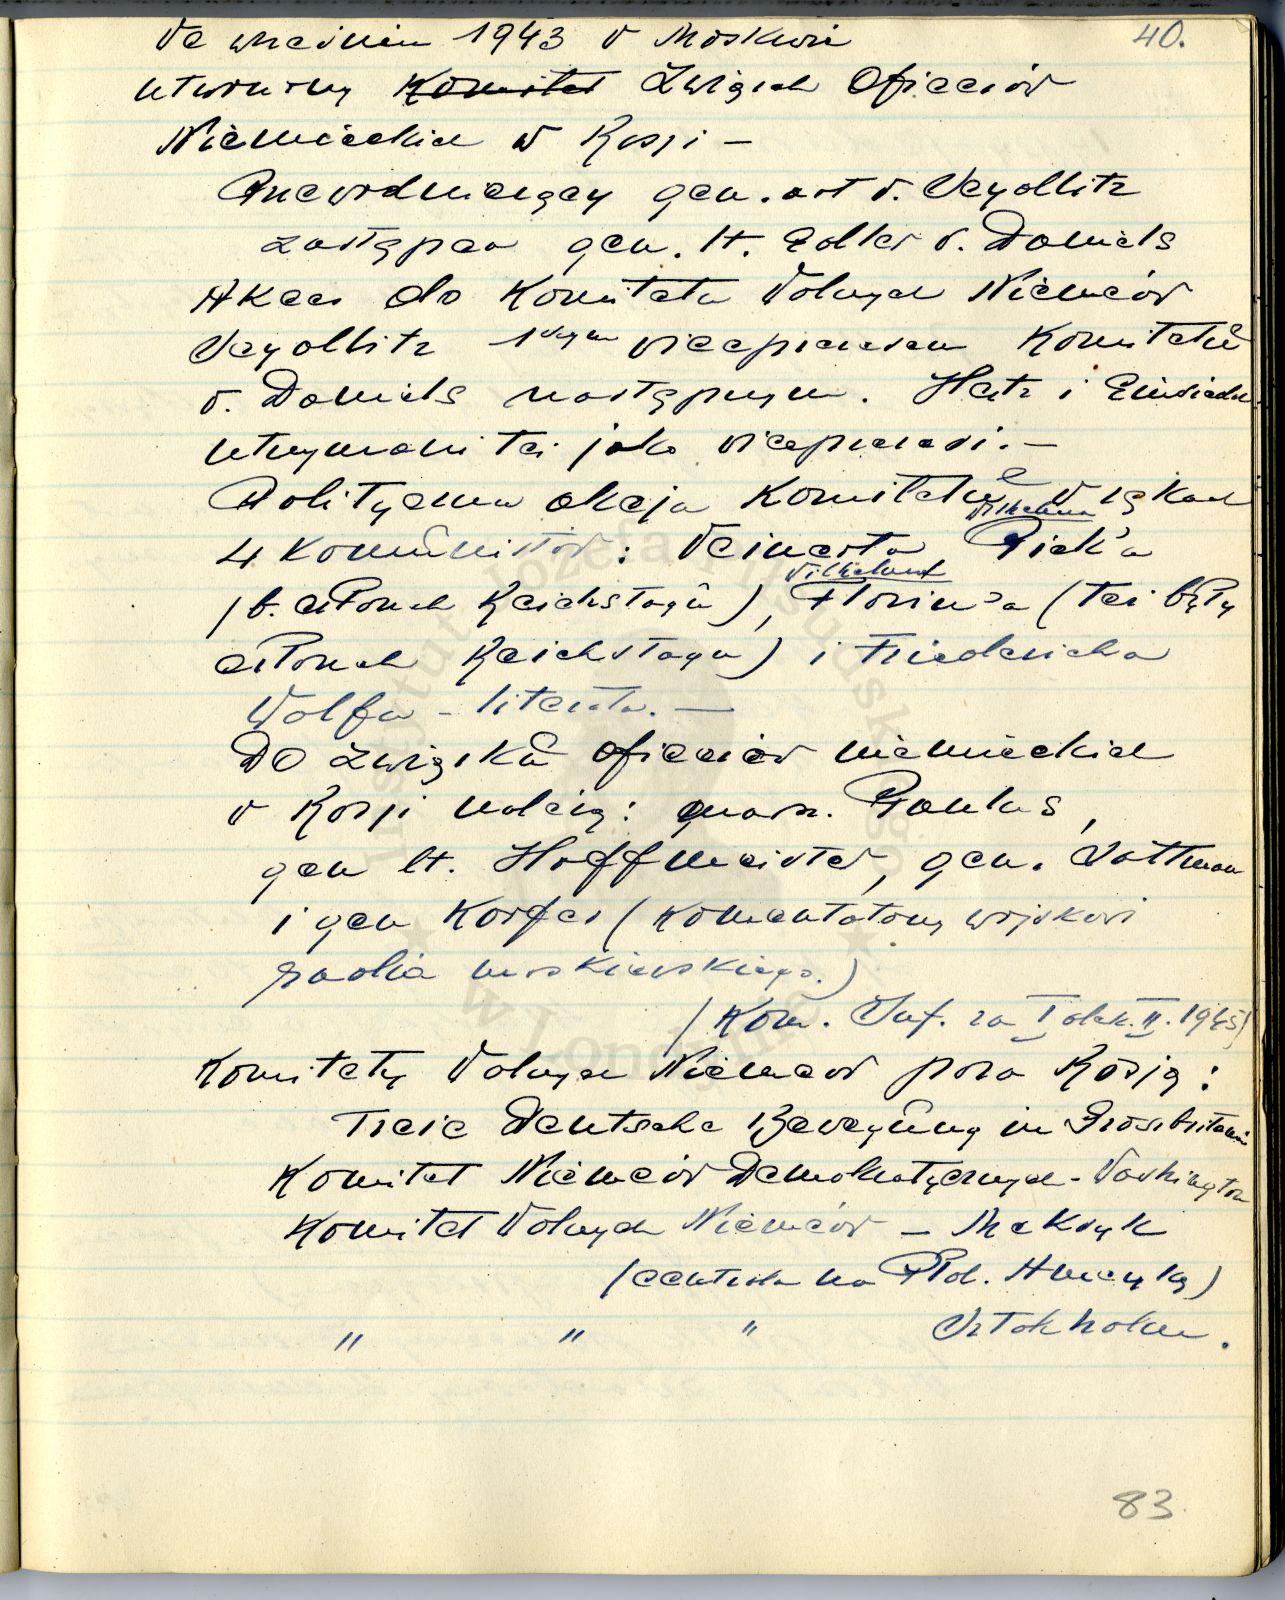 We wrześniu 1943 w Moskwie 40.
utworzony ~~Komitet~~ Związek Oficerów
Niemieckich w Rosji –
Przewodniczący gen. art v. Seydlitz
zastępca gen. lt. Edler v. Daniels
Akces do Komitetu Wolnych Niemców
Seydlitz 1szym viceprezesem Komitetu
v. Daniels następnym. Hetz i Einsiedel
utrzymani też jako viceprezesi. –
Polityczna akcja Komitetu w rękach
4 komunistów: Weinerta, Wilhelma Pieck'a
(b. członek Reichstagu), Wilhelma Florin'a (też były
członek Reichstagu) i Friedericha
Wolfa – literata. –
Do Związku oficerów niemieckich
w Rosji należą: marsz. Paulus,
gen lt. Hoffmeister, gen. Vattman
i gen Korfes (komentatorzy wojskowi
radia moskiewskiego.)
(Kom. Inf. za I dek. II. 1945)
Komitety Wolnych Niemców poza Rosją:
Freie Deutsche Bewegung in Grossbritanien
Komitet Niemców Demokratycznych – Washington
Komitet Wolnych Niemców – Meksyk
(centrala na Płd. Amerykę)
" " " Sztokholm.
83
Instytut Józefa Piłsudskiego
w Londynie